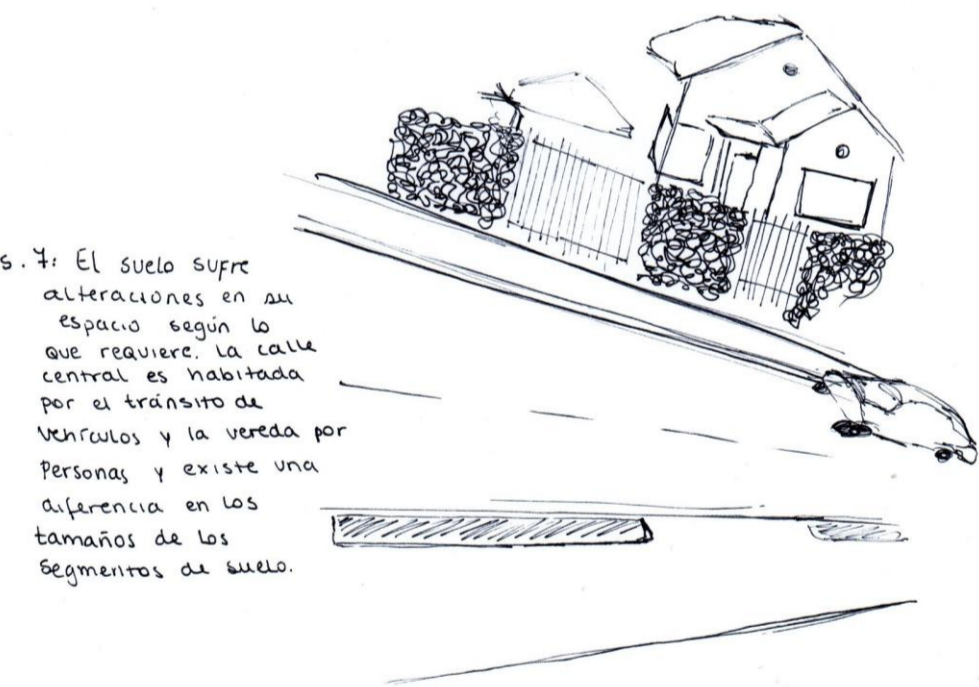 s. 7: El suelo sufre
alteraciones en su
espacio según lo
que requiere. La calle
central es habitada
por el tránsito de
vehículos y la vereda por
Personas y existe una
diferencia en los
tamaños de los
segmentos de suelo.